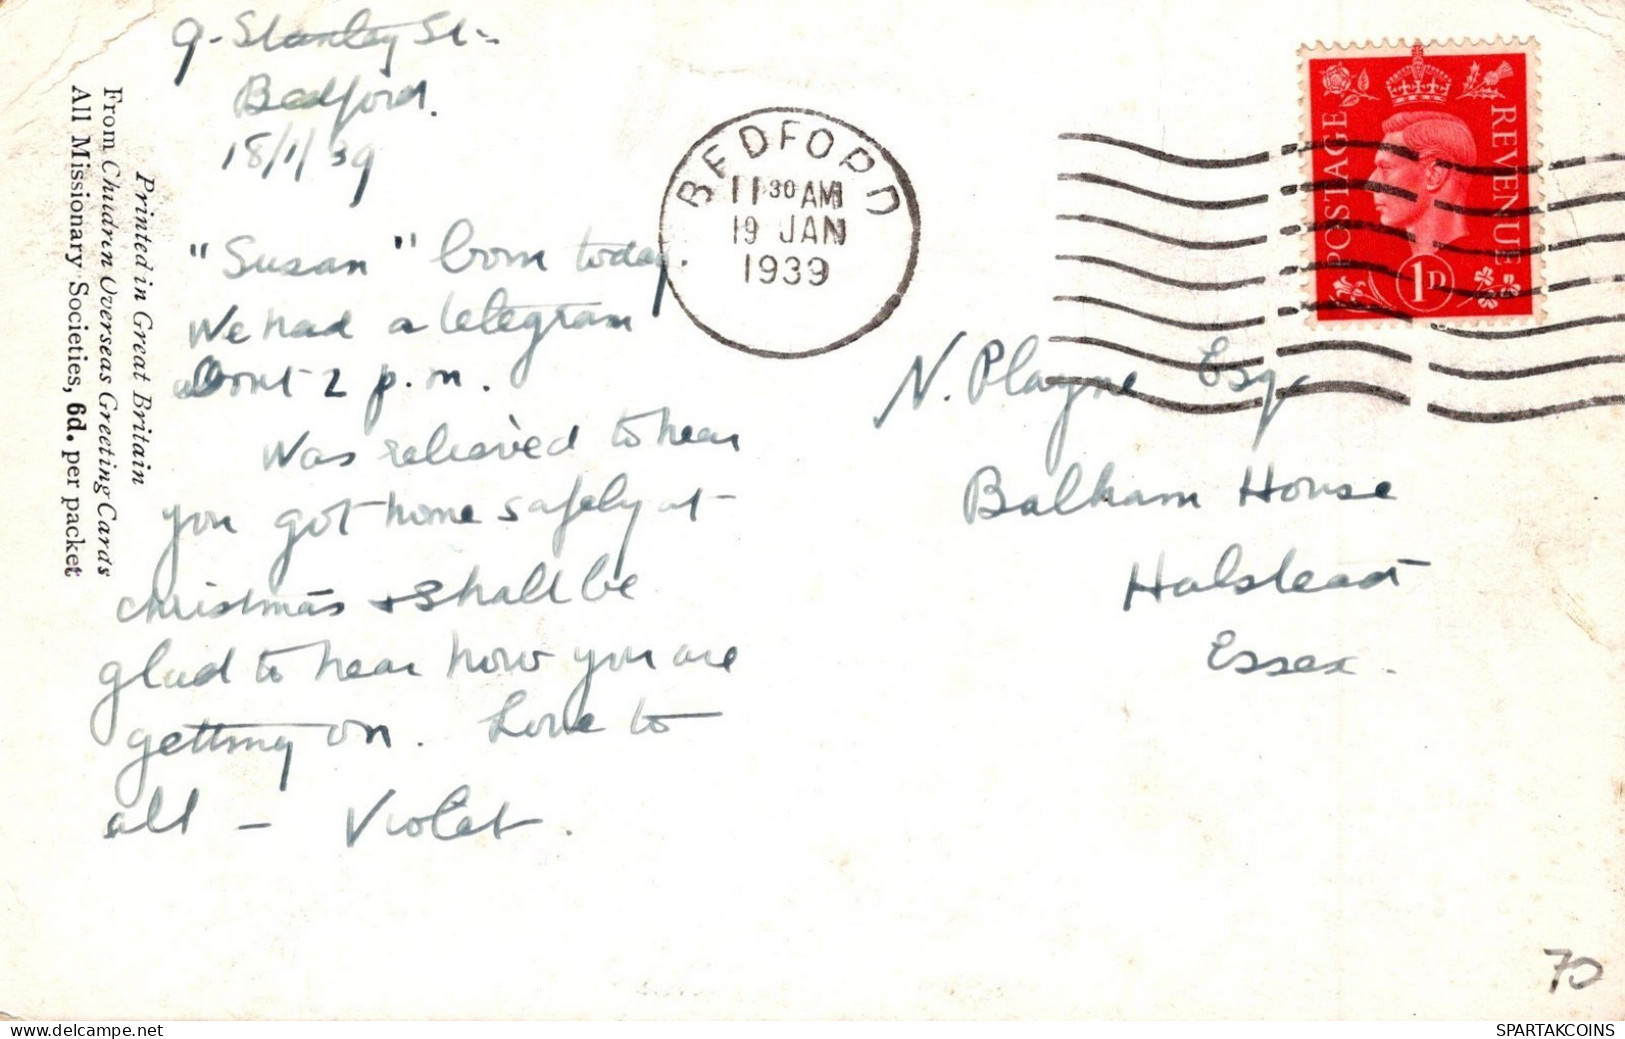 9. Stanley St.
Bedford.
18/1/39
"Susan" born today.
We had a telegram
about 2 p.m.
Was relieved to hear
you got home safely at
christmas + shall be
glad to hear how you are
getting on. Love to
all - Violet.
Printed in Great Britain
From Chudren Overseas Greeting Cards
All Missionary Societies, 6d. per packet
BEDFORD
11 30 AM
19 JAN
1939
POSTAGE
REVENUE
1D
N. Playne Esq.
Balham House
Halstead
Essex.
70
SPARTAKCOINS